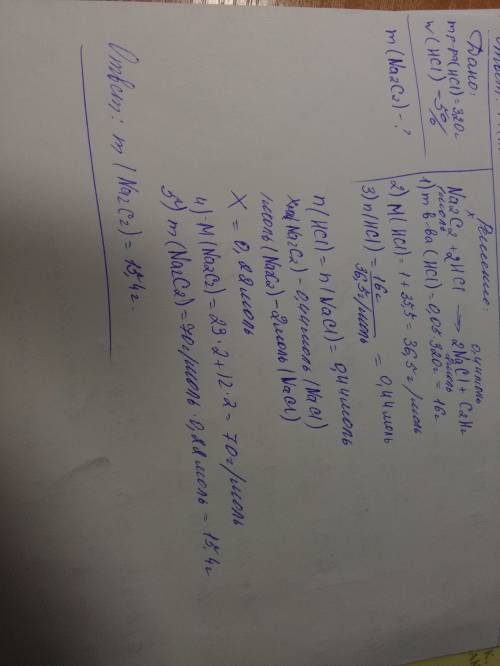 Дано:
m р-ра(HCl)=320г
w(HCl)-5%
m(Na2C2)-?
Решение:
x 0,44моль
Na2C2+2HCl → 2NaCl+C2H2
1моль 2моль
1) m в-ва(HCl)=0,05·320г=16г
2) M(HCl)=1+35,5=36,5г/моль
3) n(HCl)=16г/36,5г/моль = 0,44моль
n(HCl)=n(NaCl)=0,44моль
xмоль(Na2C2)-0,44моль(NaCl)
1моль(Na2C2)-2моль(NaCl)
X=0,22моль
4) M(Na2C2)=23·2+12·2=70г/моль
5) m(Na2C2)=70г/моль·0,22моль=15,4г
Ответ: m(Na2C2)=15,4г.